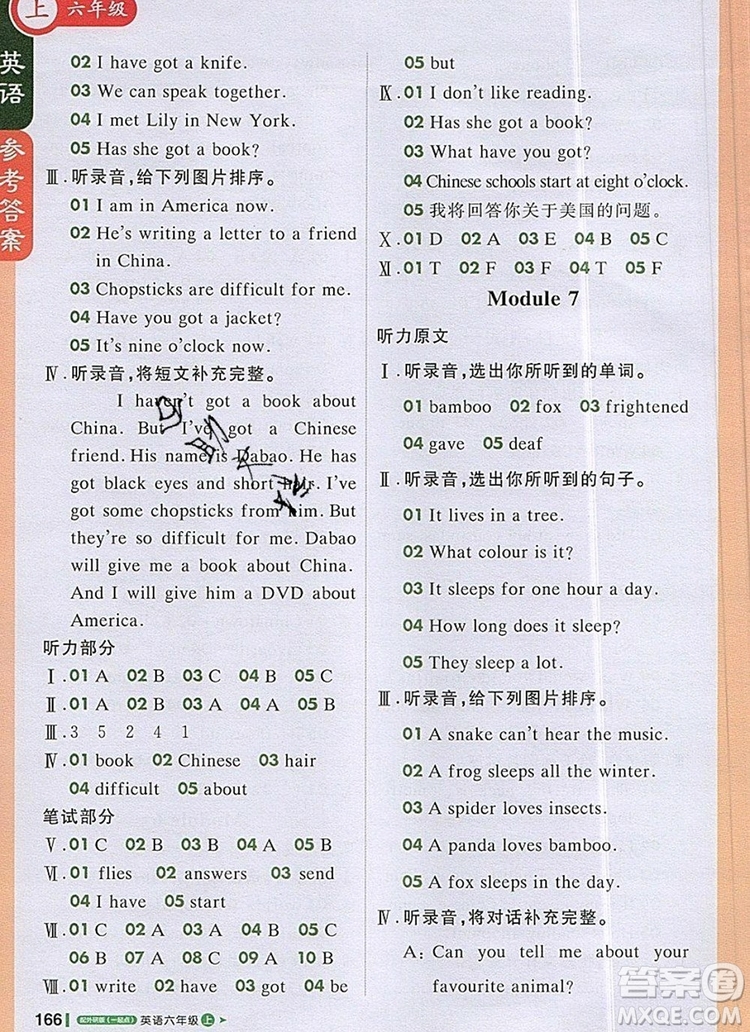 上 六年级
英语
参考答案
02 I have got a knife.
03 We can speak together.
04 I met Lily in New York.
05 Has she got a book?
Ⅲ.听录音,给下列图片排序。
01 I am in America now.
02 He's writing a letter to a friend
in China.
03 Chopsticks are difficult for me.
04 Have you got a jacket?
05 It's nine o'clock now.
Ⅳ.听录音,将短文补充完整。
I haven't got a book about
China. But I've got a Chinese
friend. His name is Dabao. He has
got black eyes and short hair. I've
got some chopsticks from him. But
they're so difficult for me. Dabao
will give me a book about China.
And I will give him a DVD about
America.
听力部分
Ⅰ.01 A 02 B 03 C 04 B 05 C
Ⅱ.01 A 02 B 03 A 04 A 05 B
Ⅲ.3 5 2 4 1
Ⅳ.01 book 02 Chinese 03 hair
04 difficult 05 about
笔试部分
Ⅴ.01 C 02 B 03 A 04 C 05 B
Ⅵ.01 flies 02 answers 03 send
04 I have 05 start
Ⅶ.01 C 02 A 03 A 04 B 05 C
06 B 07 C 08 C 09 A 10 A
Ⅷ.01 write 02 have 03 got 04 be
05 but
Ⅸ.01 I don't like reading.
02 Has she got a book?
03 What have you got?
04 Chinese schools start at eight o'clock.
05 我将回答你关于美国的问题。
Ⅹ.01 D 02 A 03 E 04 B 05 C
Ⅺ.01 T 02 F 03 F 04 T 05 F
Module 7
听力原文
Ⅰ.听录音,选出你所听到的单词。
01 bamboo 02 fox 03 frightened
04 gave 05 deaf
Ⅱ.听录音,选出你所听到的句子。
01 It lives in a tree.
02 What colour is it?
03 It sleeps for one hour a day.
04 How long does it sleep?
05 They sleep a lot.
Ⅲ.听录音,给下列图片排序。
01 A snake can't hear the music.
02 A frog sleeps all the winter.
03 A spider loves insects.
04 A panda loves bamboo.
05 A fox sleeps in the day.
Ⅳ.听录音,将对话补充完整。
A: Can you tell me about your
favourite animal?
166 配外研版(一起点) 英语六年级 上
答案圈
MXQE.COM